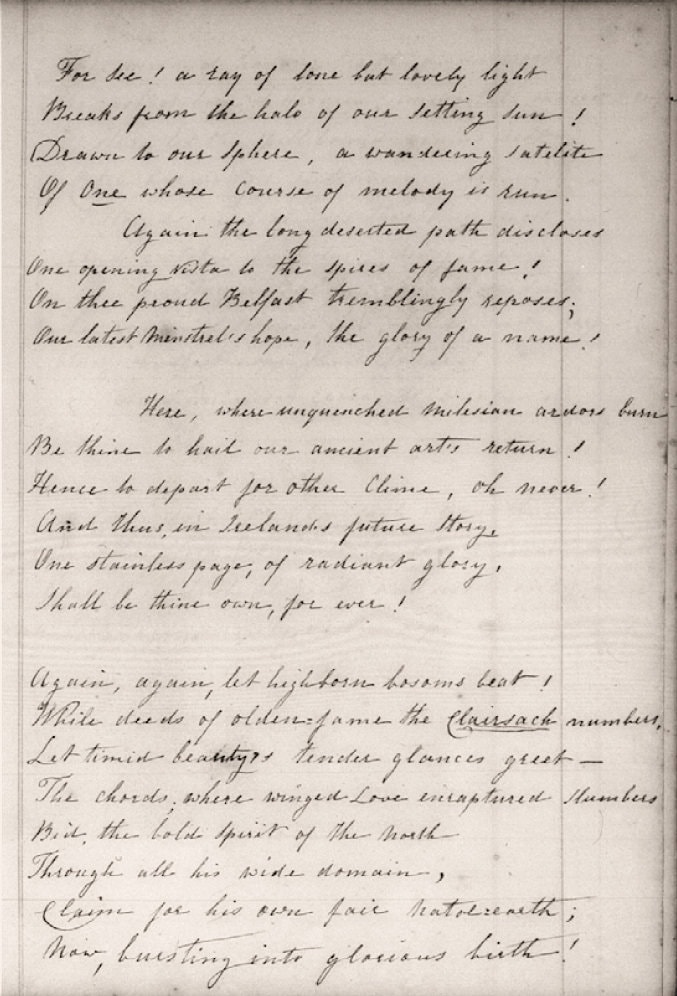 For see! a ray of lone but lovely light
Breaks from the halo of our setting sun!
Drawn to our sphere, a wandering satelite
Of One whose course of melody is run.
Again the long deserted path discloses
One opening vista to the spires of fame!
On thee proud Belfast tremblingly reposes,
Our latest Minstrel's hope, the glory of a name!
Here, where unquenched Milesian ardors burn
Be thine to hail our ancient art's return!
Hence to depart for other Clime, oh never!
And thus, in Ireland's future story,
One stainless page, of radiant glory,
Shall be thine own, for ever!
Again, again, let highborn bosoms beat!
While deeds of olden=fame the Clairsach numbers,
Let timid beauty's tender glances greet —
The chords, where winged Love enraptured slumbers
Bid, the bold spirit of the North
Through all his wide domain,
Claim for his own fair natal=earth;
Now, bursting into glorious birth!